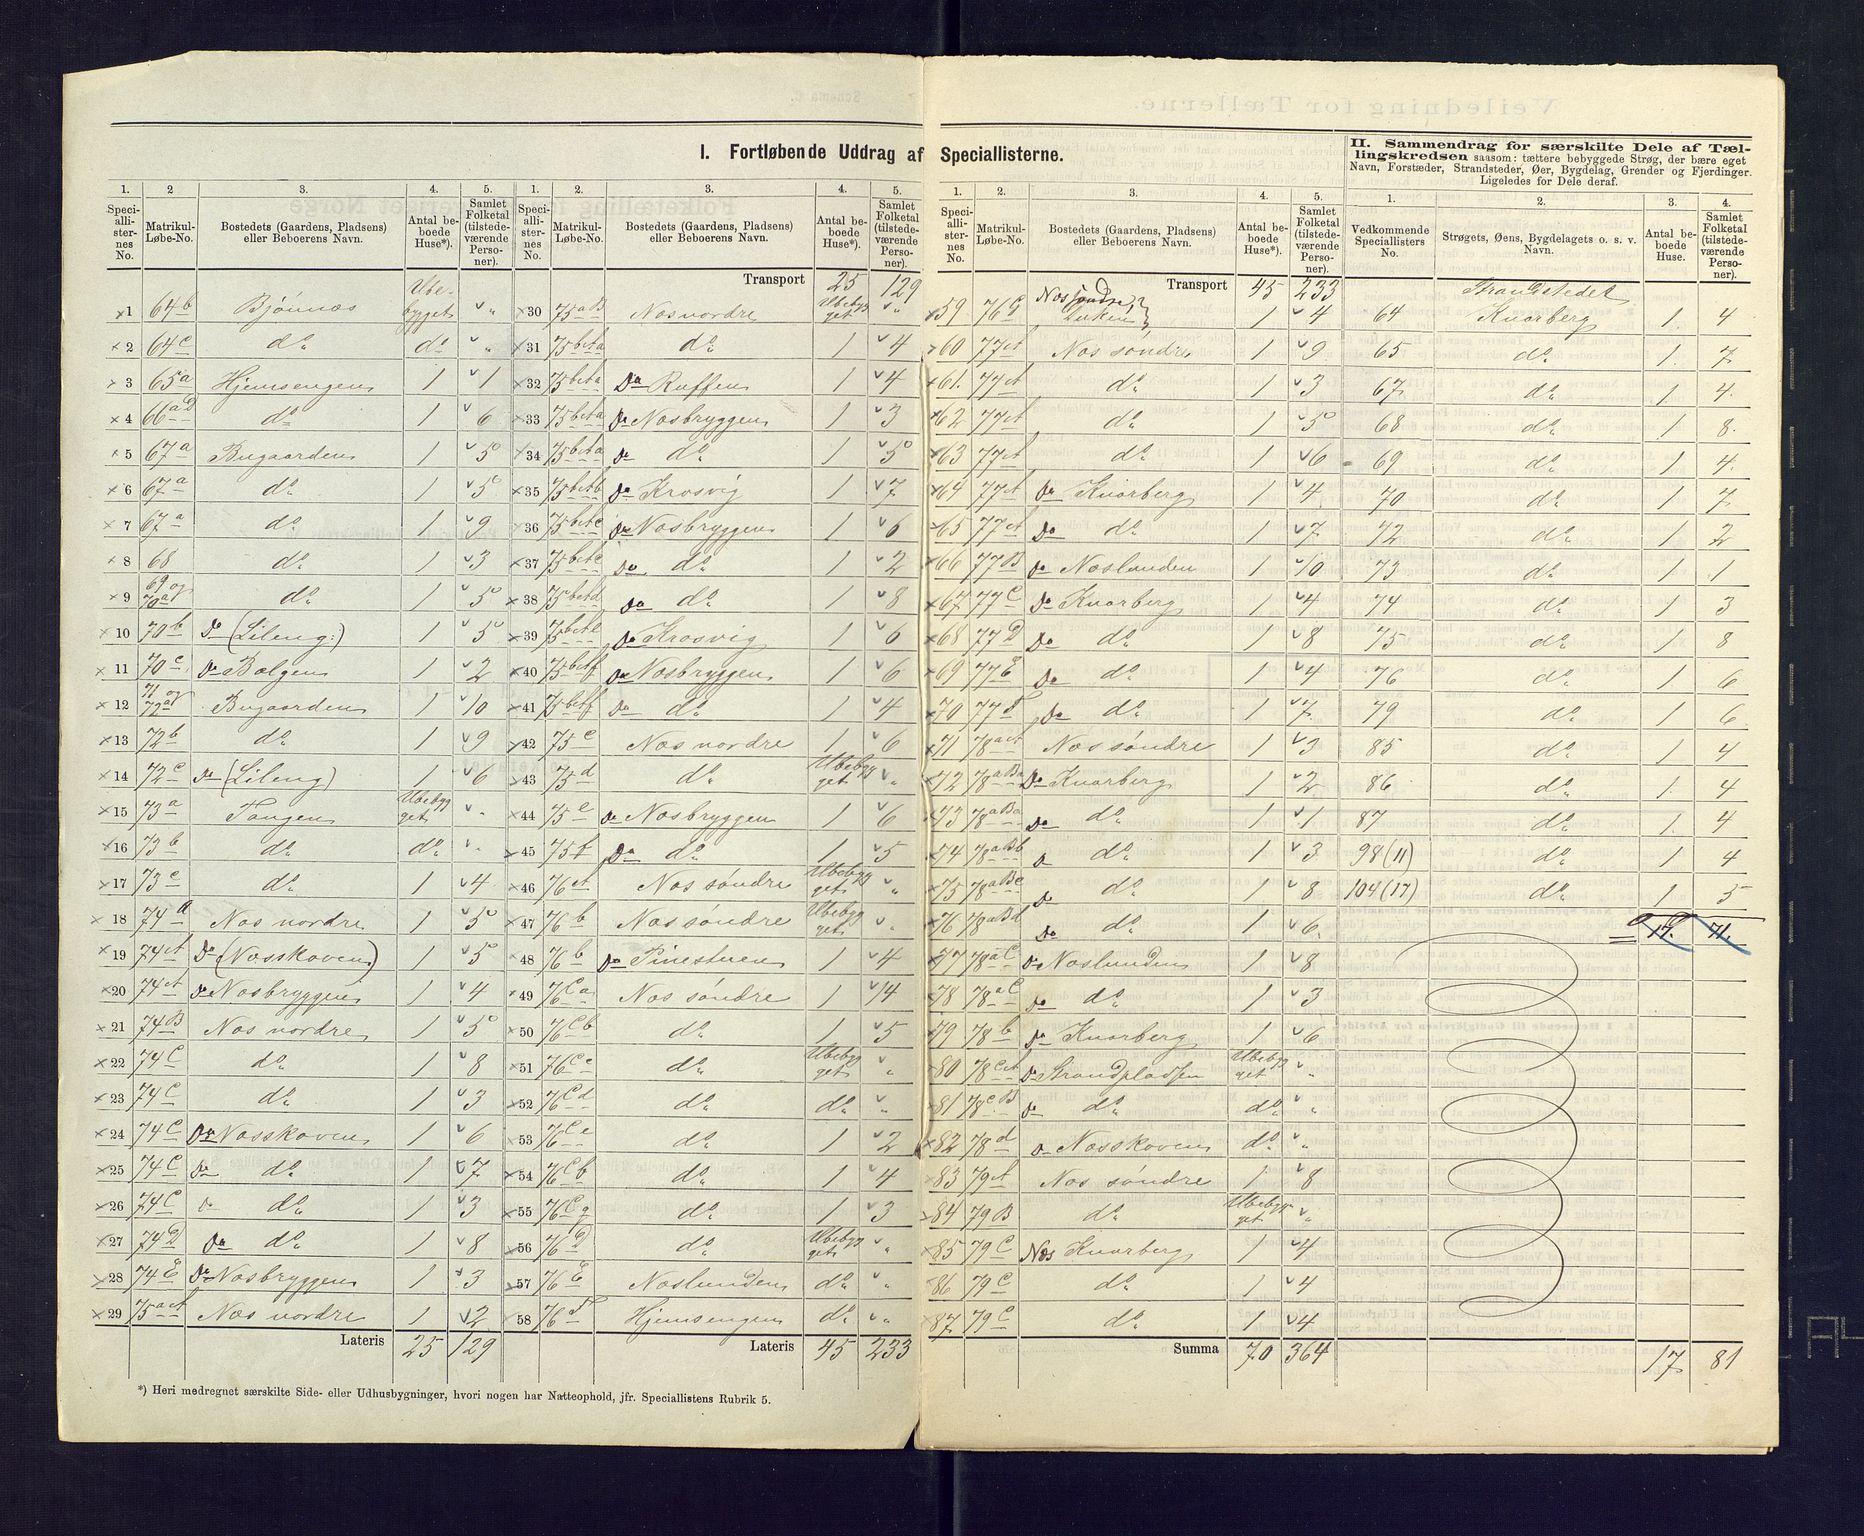 I. Fortløbende Uddrag af Speciallisterne.
1. 2 3. 4. 5.
Speciallisternes No. Matrikul-Løbe-No. Bostedets (Gaardens, Pladsens) eller Beboerens Navn. Antal beboede Huse*). Samlet Folketal (tilstedeværende Personer).
1 64b Bjørnnæs Ubebygget "
2 64c do do "
3 65a Hjemsengen 1 1
4 66aD do 1 6
5 67a Bugaarden 1 5
6 67a do 1 5
7 67a do 1 9
8 68 do 1 3
9 69 og 70a do 1 5
10 70b Do (Lileng:) 1 5
11 70c Do Bølgen 1 2
12 71 og 72a Bugaarden 1 10
13 72b do 1 9
14 72c Do (Lileng) 1 6
15 73a Tangen Ubebygget "
16 73b do do "
17 73c do 1 4
18 74A Næs nordre 1 5
19 74A Do (Næsskoven) 1 5
20 74A Do Næsbryggen 1 4
21 74B Næs nordre 1 5
22 74C do 1 8
23 74C do 1 3
24 74C Do Næsskoven 1 6
25 74C Do do 1 7
26 74C Do do 1 3
27 74D Do do 1 8
28 74E Do Næsbryggen 1 3
29 75aA Næs nordre 1 2
Lateris 25 129
*) Heri medregnet særskilte Side- eller Udhusbygninger, hvori nogen har Natteophold, jfr. Speciallistens Rubrik 5.
1. 2. 3. 4. 5.
Speciallisternes No. Matrikul-Løbe-No. Bostedets (Gaardens, Pladsens) eller Beboerens Navn. Antal beboede Huse*). Samlet Folketal (tilstedeværende Personer).
Transport 25 129
30 75aB Næs nordre Ubebygget "
31 75bAa do 1 4
32 75bAa Do Ruffen 1 4
33 75bAa Do Næsbryggen 1 3
34 75bAa Do do 1 5
35 75bAb Do Krosvig 1 7
36 75bAc Do Næsbryggen 1 6
37 75bAc Do do 1 2
38 75bAd Do do 1 8
39 75bAe Do Krosvig 1 6
40 75bAf Do Næsbryggen 1 6
41 75bAf Do do 1 4
42 75c Næs nordre 1 6
43 75d do Ubebygget "
44 75e Do Næsbryggen 1 6
45 75f Do do 1 5
46 76A Næs søndre Ubebygget "
47 76b Næs søndre Ubebygget "
48 76b Do Pinestuen 1 4
49 76Ca Næs søndre 1 14
50 76Cb do 1 5
51 76Cc do Ubebygget "
52 76Cd do do "
53 76Ce do 1 2
54 76Cb do 1 4
55 76Cg do 1 3
56 76D do Ubebygget "
57 76E Næslunden do "
58 76F Hjemsengen do "
Lateris 45 233
1. 2. 3. 4. 5.
Speciallisternes No. Matrikul-Løbe-No. Bostedets (Gaardens, Pladsens) eller Beboerens Navn. Antal beboede Huse*). Samlet Folketal (tilstedeværende Personer).
Transport 45 233
59 76G Næs søndre 1 4
60 77A Næs søndre 1 9
61. 77A do 1 3
62 77A do 1 5
63 77A do 1 6
64 77A Do Kvarberg 1 4
65 77A Do do 1 7
66 77B Do Næslunden 1 10
67 77C Do Kvarberg 1 4
68 77D Do do 1 8
69 77E Do do 1 4
70 77F Do do 1 7
71 78aA Næs søndre 1 3
72 78aBa Do Kvarberg 1 2
73 78aBa Do do 1 1
74 78aBb Do do 1 3
75 78aBc Do do 1 8
76 78aBd Do do 1 6
77 78aC Do Næslunden 1 8
78 78aC Do do 1 3
79 78b Do Kvarberg 1 6
80 78cA Do Strandpladsen Ubebygget "
81 78cB Do do do "
82 78d Do Næsskoven do "
83 79A Næs søndre 1 8
84 79B do Ubebygget "
85 79C Næs Kvarberg 1 4
86 79C do 1 4
87 79C do 1 4
Summa 70 364
II. Sammendrag for særskilte Dele af Tællingskredsen saasom: tættere bebyggede Strøg, der bære eget Navn, Forstæder, Strandsteder, Øer, Bygdelag, Grender og Fjerdinger. Ligeledes for Dele deraf.
1. 2. 3. 4.
Vedkommende Speciallisters No. Strøgets, Øens, Bygdelagets o. s. v. Navn. Antal beboede Huse. Samlet Folketal (tilstedeværende Personer).
Strandstedet
64 Kvarberg 1. 4
65 do 1. 7
67 do 1 4
68 do 1 8
69 do 1. 4
70 do 1 7
72 do 1 2
73 do 1 1
74 do 1 3
75 do 1 8
76 do 1 6
79 do 1 6
85 do 1 4
86 do 1 4
87 do 1 4
98(11) do 1 4
104(17) do 1 5
17. 71.
17 81